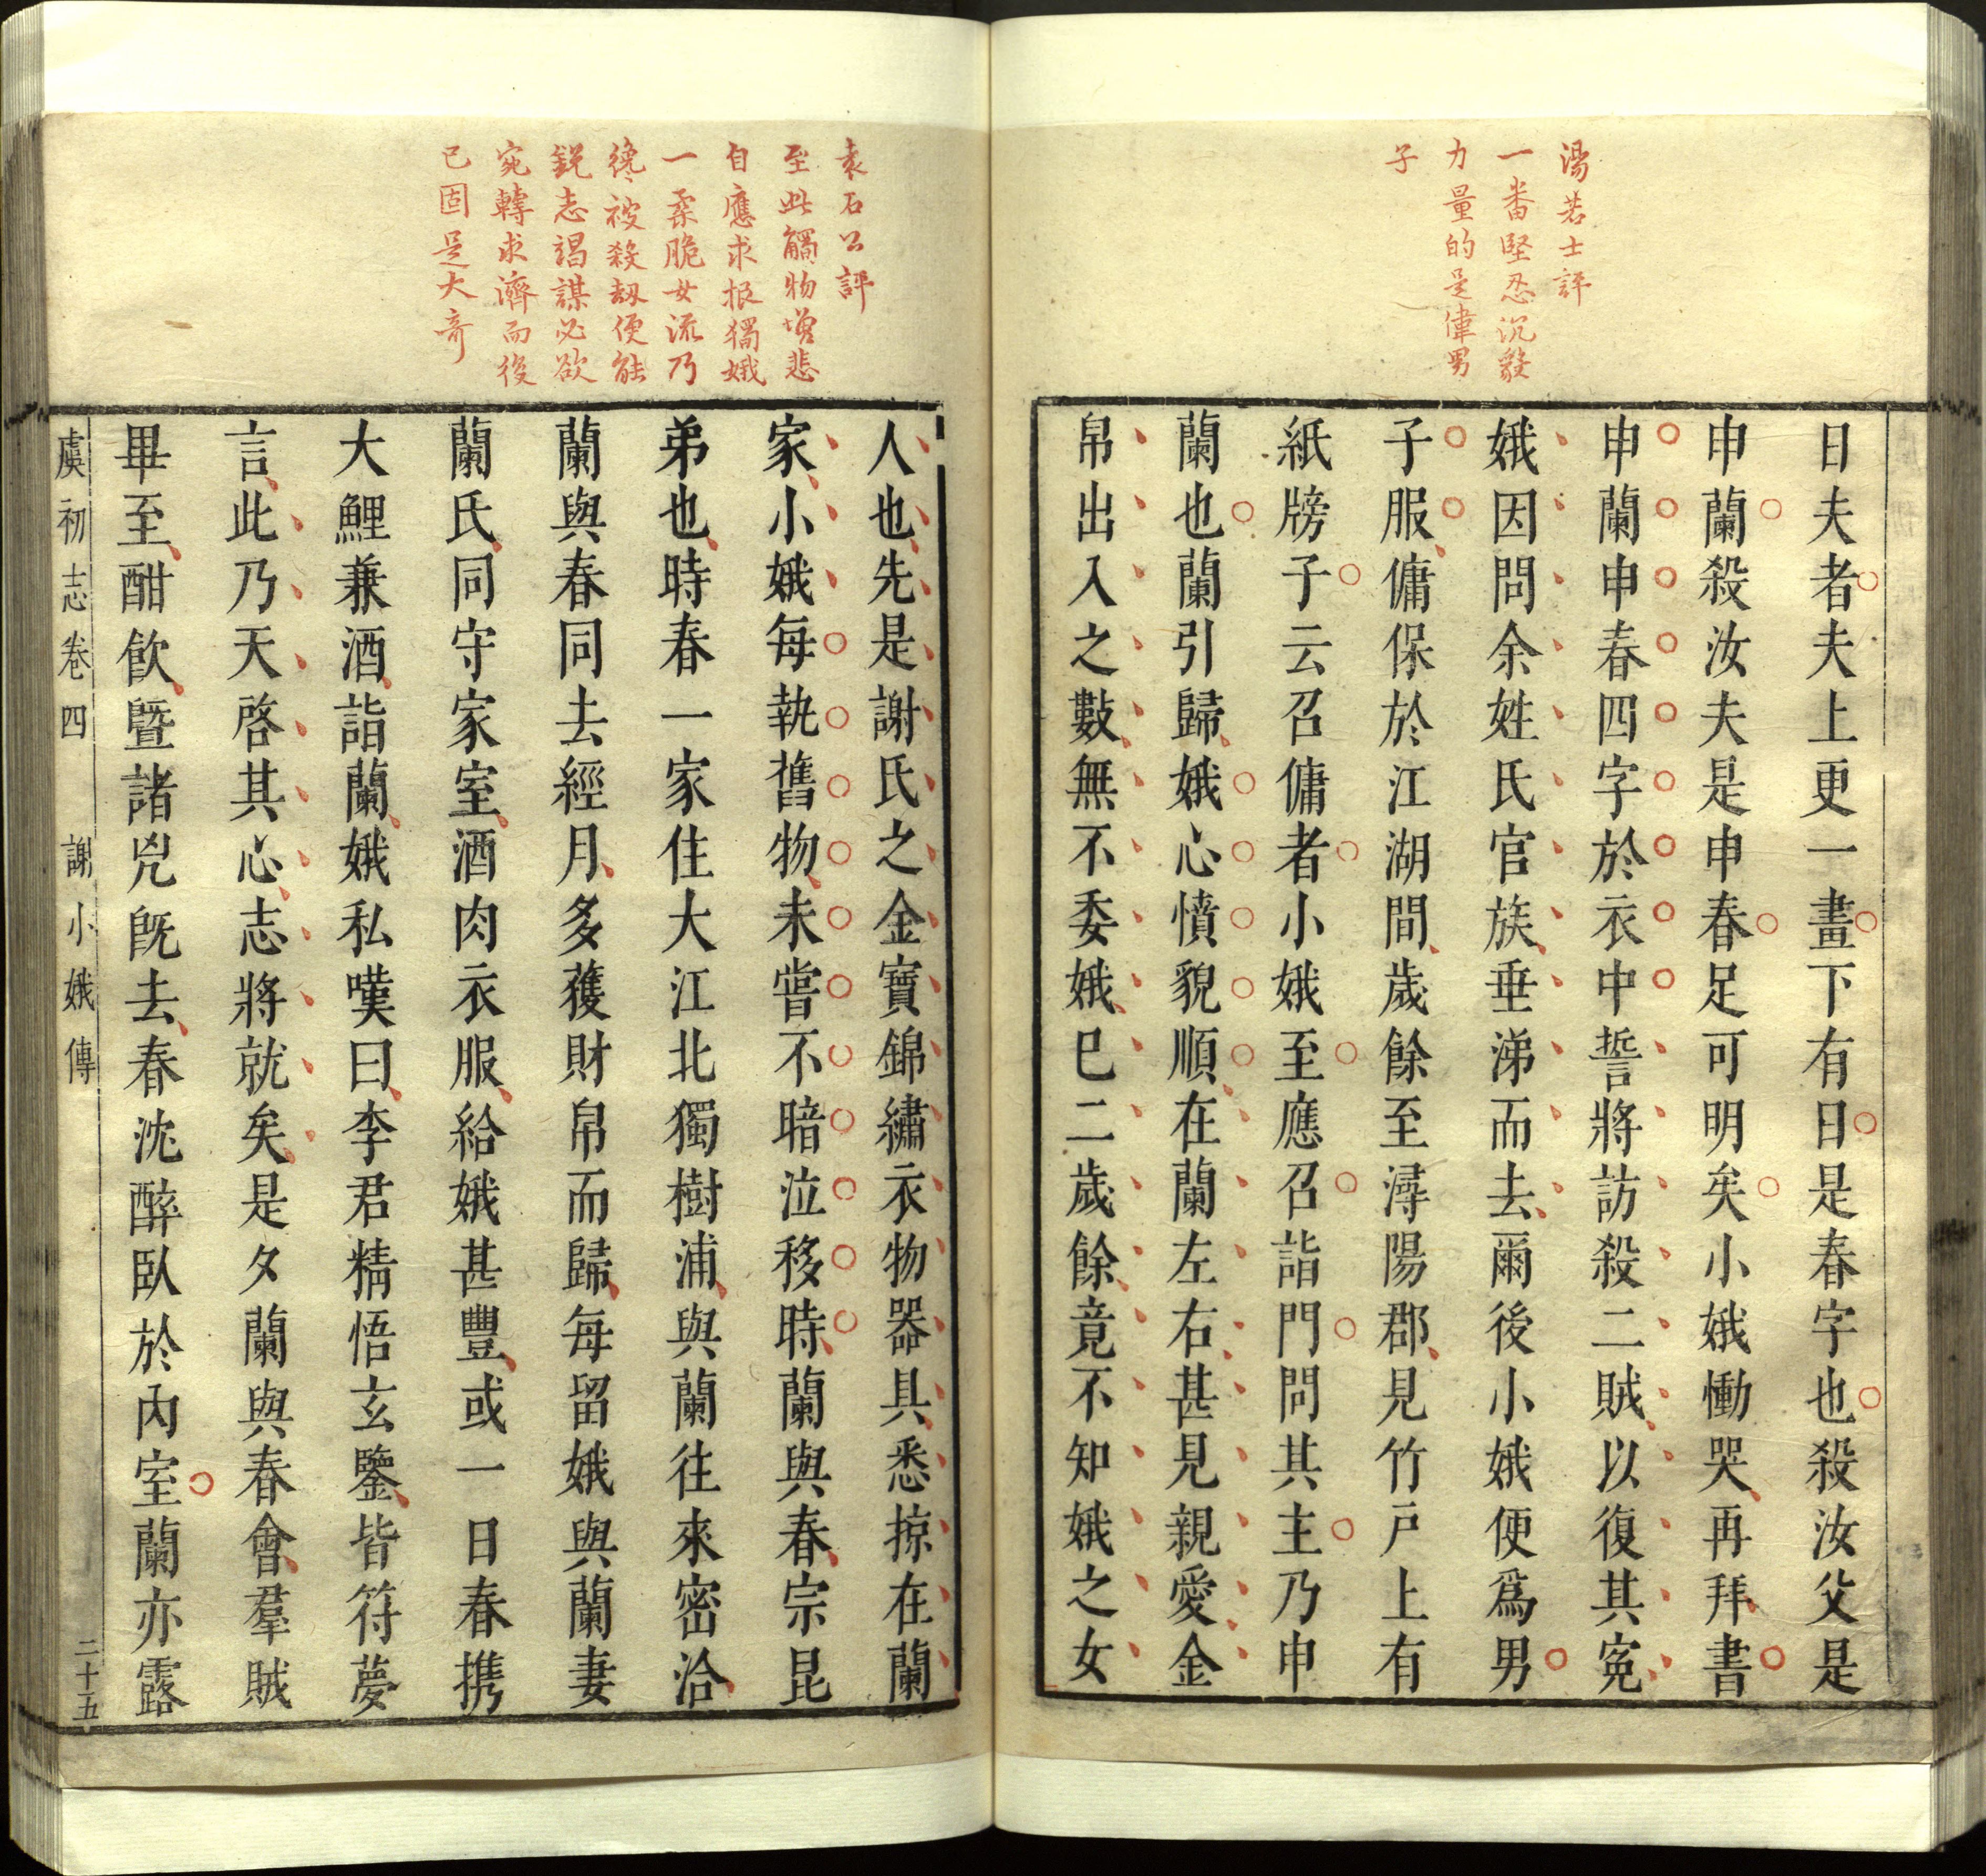 湯若士評
一番堅忍沉毅
力量的是偉男
子
日夫者夫上更一畫下有日是春字也殺汝父是
申蘭殺汝夫是申春足可明矣小娥慟哭再拜書
申蘭申春四字於衣中誓將訪殺二賊以復其冤
娥因問余姓氏官族垂涕而去爾後小娥便爲男
子服傭保於江湖間歲餘至潯陽郡見竹戸上有
紙牓子云召傭者小娥至應召詣門問其主乃申
蘭也蘭引歸娥心憤貌順在蘭左右甚見親愛金
帛出入之數無不委娥已二歲餘竟不知娥之女
袁石公評
至此觸物增悲
自應求报獨娥
一柔脆女流乃
纔被殺刼便能
鋭志謁謀必欲
宛轉求濟而後
已固是大奇
人也先是謝氏之金寶錦繡衣物器具悉掠在蘭
家小娥每執舊物未嘗不暗泣移時蘭與春宗昆
弟也時春一家住大江北獨樹浦與蘭往來密洽
蘭與春同去經月多獲財帛而歸每留娥與蘭妻
蘭氏同守家室酒肉衣服給娥甚豐或一日春携
大鯉兼酒詣蘭娥私嘆曰李君精悟玄鑒皆符夢
言此乃天啓其心志將就矣是夕蘭與春會羣賊
畢至酣飲曁諸兇旣去春沈醉臥於內室蘭亦露
虞初志卷四 謝小娥傳 二十五